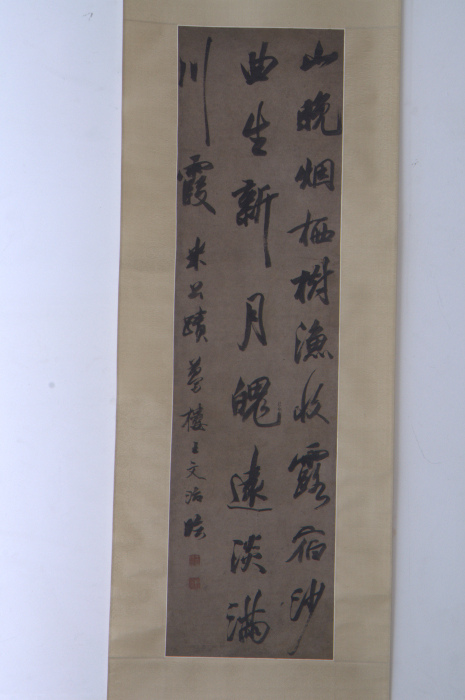 山晚烟栖樹漁收露宿沙
曲生新月魄遠淡滿
川霞 米公蹟 夢樓王文治臨